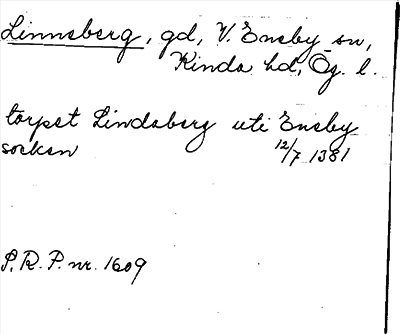 Linnsberg, gd, V. Eneby sn,
Kinda hd, Ög. l.
torpet Lindaberg uti Eneby
socken 12/7 1381
P.R.P. nr. 1609